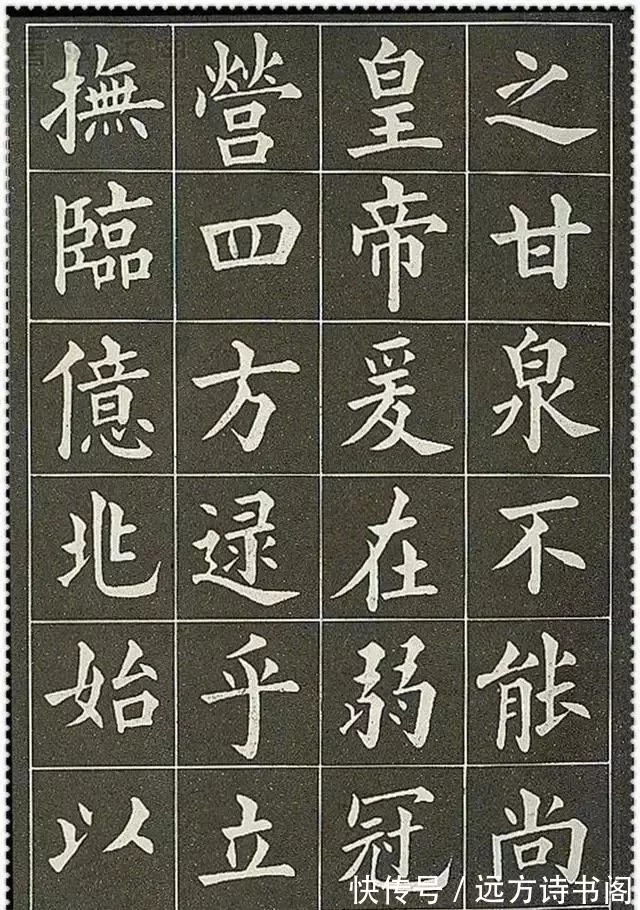 之甘泉不能尚
皇帝爰在弱冠
營四方逮乎立
撫臨億兆始以
快传号 / 远方诗书阁